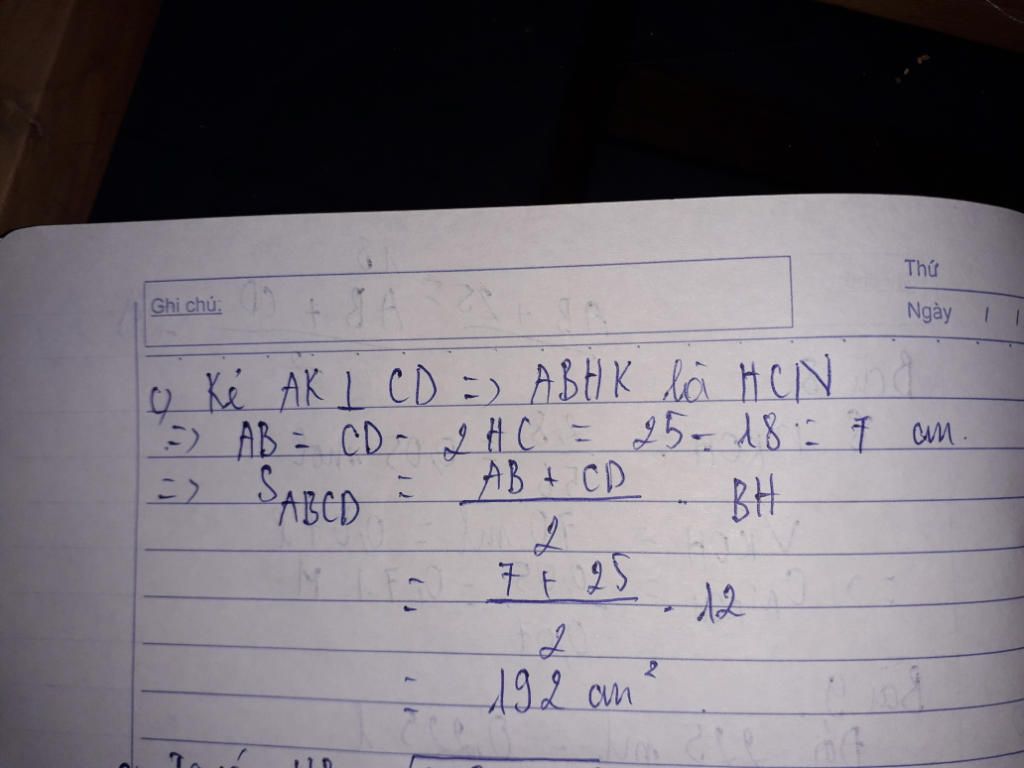 Thứ
Ghi chú:
Ngày
c) Kẻ AK ⊥ CD => ABHK là HCN
=> AB = CD - 2 HC = 25 - 18 = 7 cm.
=> S_ABCD = (AB + CD)/2 . BH
= (7 + 25)/2 . 12
= 192 cm²